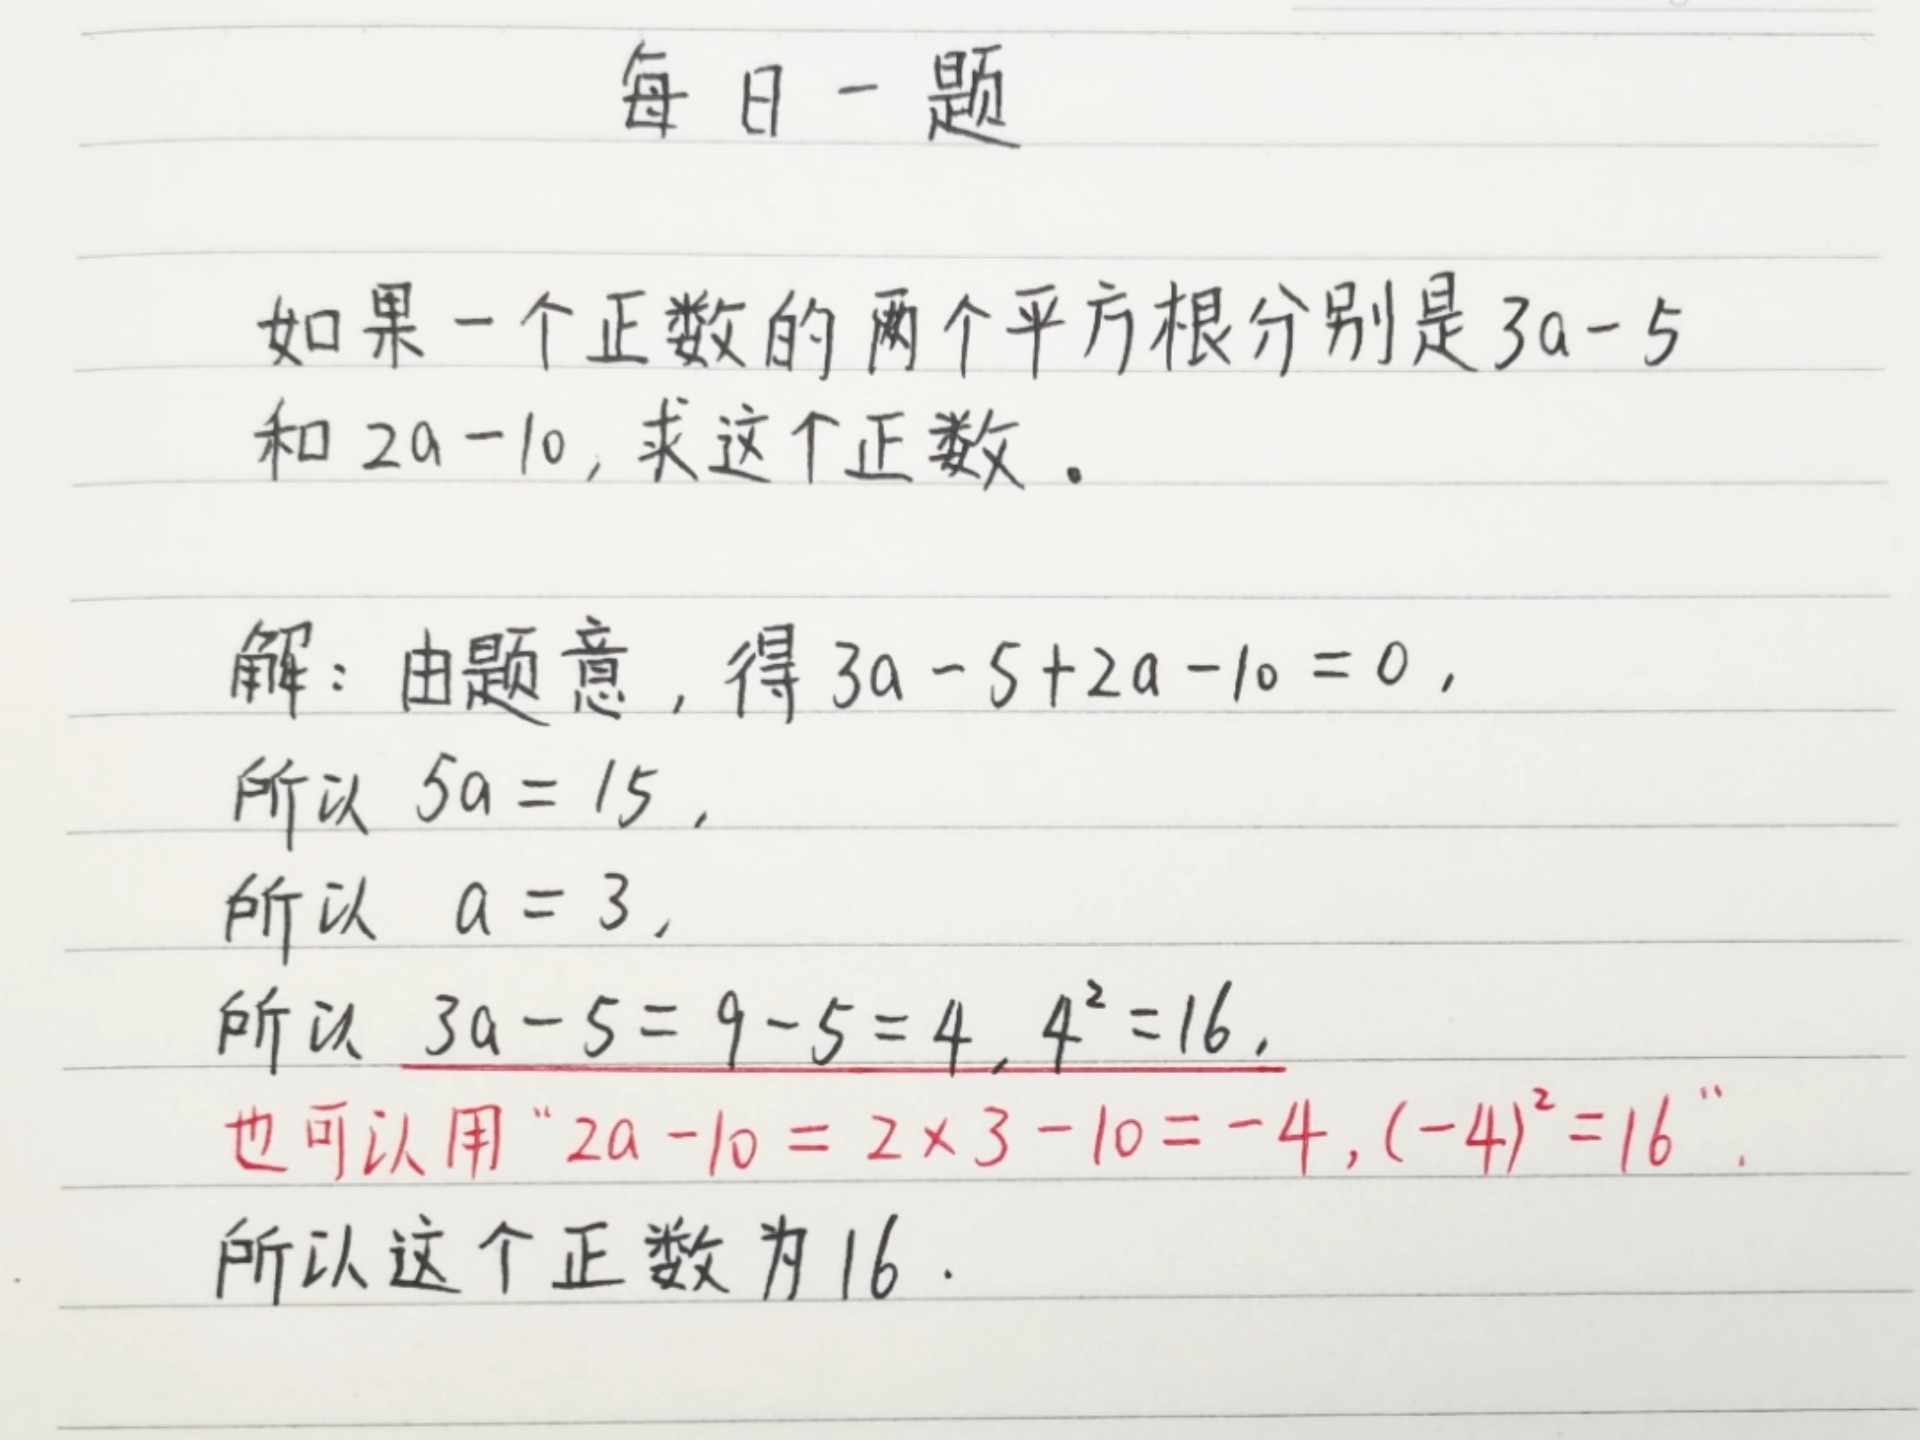 每日一题
如果一个正数的两个平方根分别是3a-5
和2a-10,求这个正数.
解:由题意,得3a-5+2a-10=0,
所以 5a=15,
所以 a=3,
所以 3a-5=9-5=4,4²=16,
也可以用“2a-10=2×3-10=-4,(-4)²=16”.
所以这个正数为16.